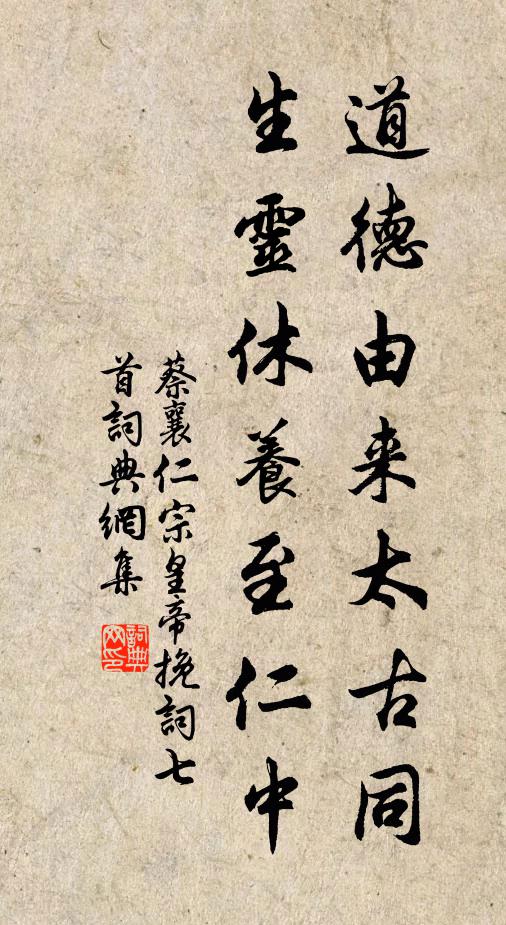 道德由来太古同
生靈休養至仁中
蔡襄仁宗皇帝挽詞七
首詞典網集
詞典
网印